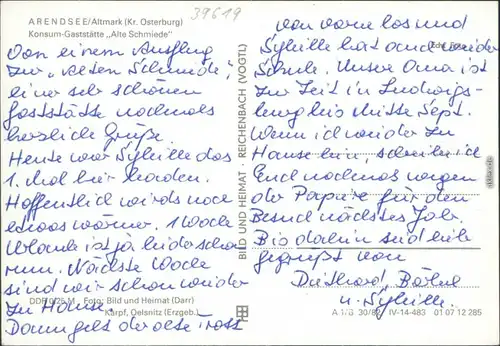 39619
ARENDSEE/Altmark (Kr. Osterburg)
Konsum-Gaststätte „Alte Schmiede"
Von einem Ausflug
zur „Alten Schmiede",
einer sehr schönen
Gaststätte nochmals
herzliche Grüße
Heute war Sybille das
1. Mal hier baden.
Hoffentlich wird's noch
etwas wärmer. 1 Woche
Urlaub ist ja leider schon
rum. Nächste Woche
sind wir schon wieder
zu Hause.
Dann geht der alte Trott
DDR 0/25 M Foto: Bild und Heimat (Darr)
Karpf, Oelsnitz (Erzgeb.)
BILD UND HEIMAT · REICHENBACH (VOGTL)
von vorne los und
Sybille hat auch wieder
Schule. Unsere Oma ist
zur Zeit in Ludwigs-
burg bis Mitte Sept.
Wenn ich wieder zu
Hause bin, schreibe ich
Euch nochmals wegen
der Papiere für den
Besuch nächstes Jahr.
Bis dahin seid lieb
gegrüßt von
Diethard, Bärbel
u. Sybille.
A 1/B 30/82 IV-14-483 01 07 12 285